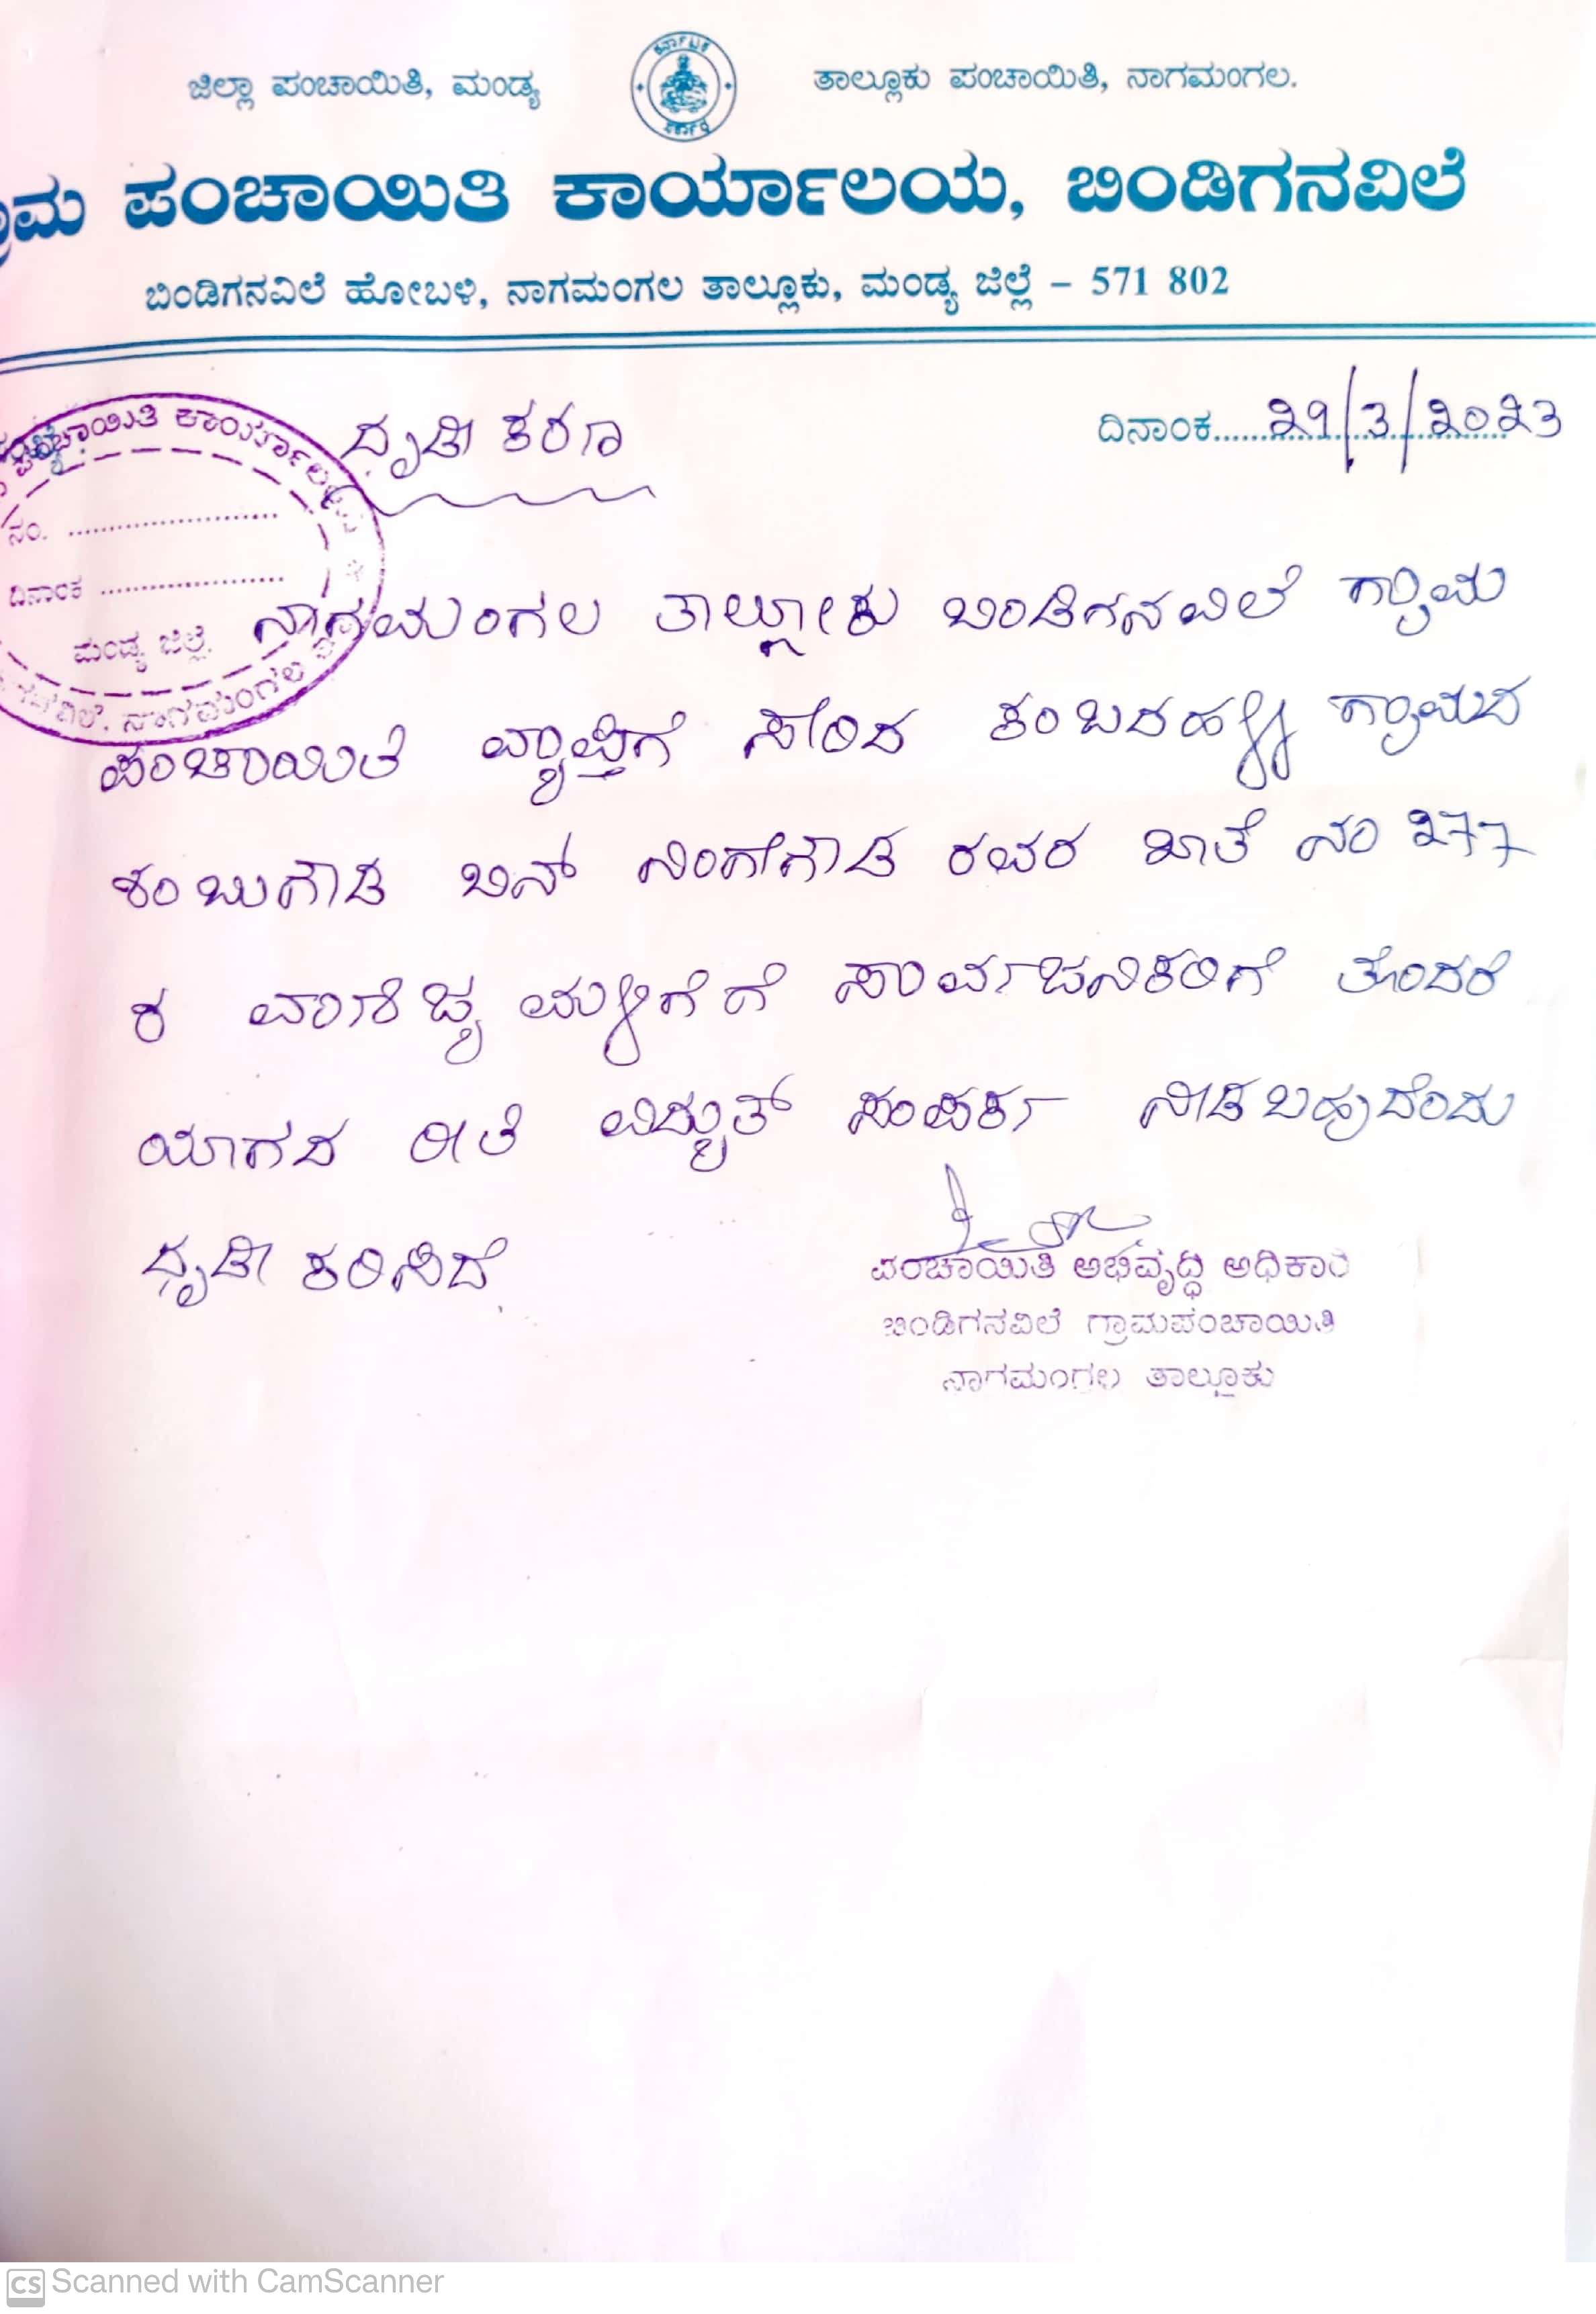 ಜಿಲ್ಲಾ ಪಂಚಾಯಿತಿ, ಮಂಡ್ಯ
ತಾಲ್ಲೂಕು ಪಂಚಾಯಿತಿ, ನಾಗಮಂಗಲ.
ಕರ್ನಾಟಕ
ಸರ್ಕಾರ
ಗ್ರಾಮ ಪಂಚಾಯಿತಿ ಕಾರ್ಯಾಲಯ, ಬಿಂಡಿಗನವಿಲೆ
ಬಿಂಡಿಗನವಿಲೆ ಹೋಬಳಿ, ನಾಗಮಂಗಲ ತಾಲ್ಲೂಕು, ಮಂಡ್ಯ ಜಿಲ್ಲೆ – 571 802
ದಿನಾಂಕ 29/3/2023
ಪಂಚಾಯಿತಿ ಕಾರ್ಯಾಲಯ
ನಂ.
ದಿನಾಂಕ
ಮಂಡ್ಯ ಜಿಲ್ಲೆ.
ನಾಗಮಂಗಲ
ದೃಡೀಕರಣ
ನಾಗಮಂಗಲ ತಾಲ್ಲೂಕು ಬಿಂಡಿಗನವಿಲೆ ಗ್ರಾಮ
ಪಂಚಾಯಿತಿ ವ್ಯಾಪ್ತಿಗೆ ಸೇರಿದ ಕಂಬದಹಳ್ಳಿ ಗ್ರಾಮದ
ಶಂಬುಗೌಡ ಬಿನ್ ನಿಂಗೇಗೌಡ ರವರ ಖಾತೆ ನಂ 277
ರ ವಾಣಿಜ್ಯ ಮಳಿಗೆಗೆ ಸಾರ್ವಜನಿಕರಿಗೆ ತೊಂದರೆ
ಯಾಗದ ರೀತಿ ವಿದ್ಯುತ್ ಸಂಪರ್ಕ ನೀಡಬಹುದೆಂದು
ದೃಡೀಕರಿಸಿದೆ.
ಪಂಚಾಯಿತಿ ಅಭಿವೃದ್ಧಿ ಅಧಿಕಾರಿ
ಬಿಂಡಿಗನವಿಲೆ ಗ್ರಾಮಪಂಚಾಯಿತಿ
ನಾಗಮಂಗಲ ತಾಲ್ಲೂಕು
CS Scanned with CamScanner